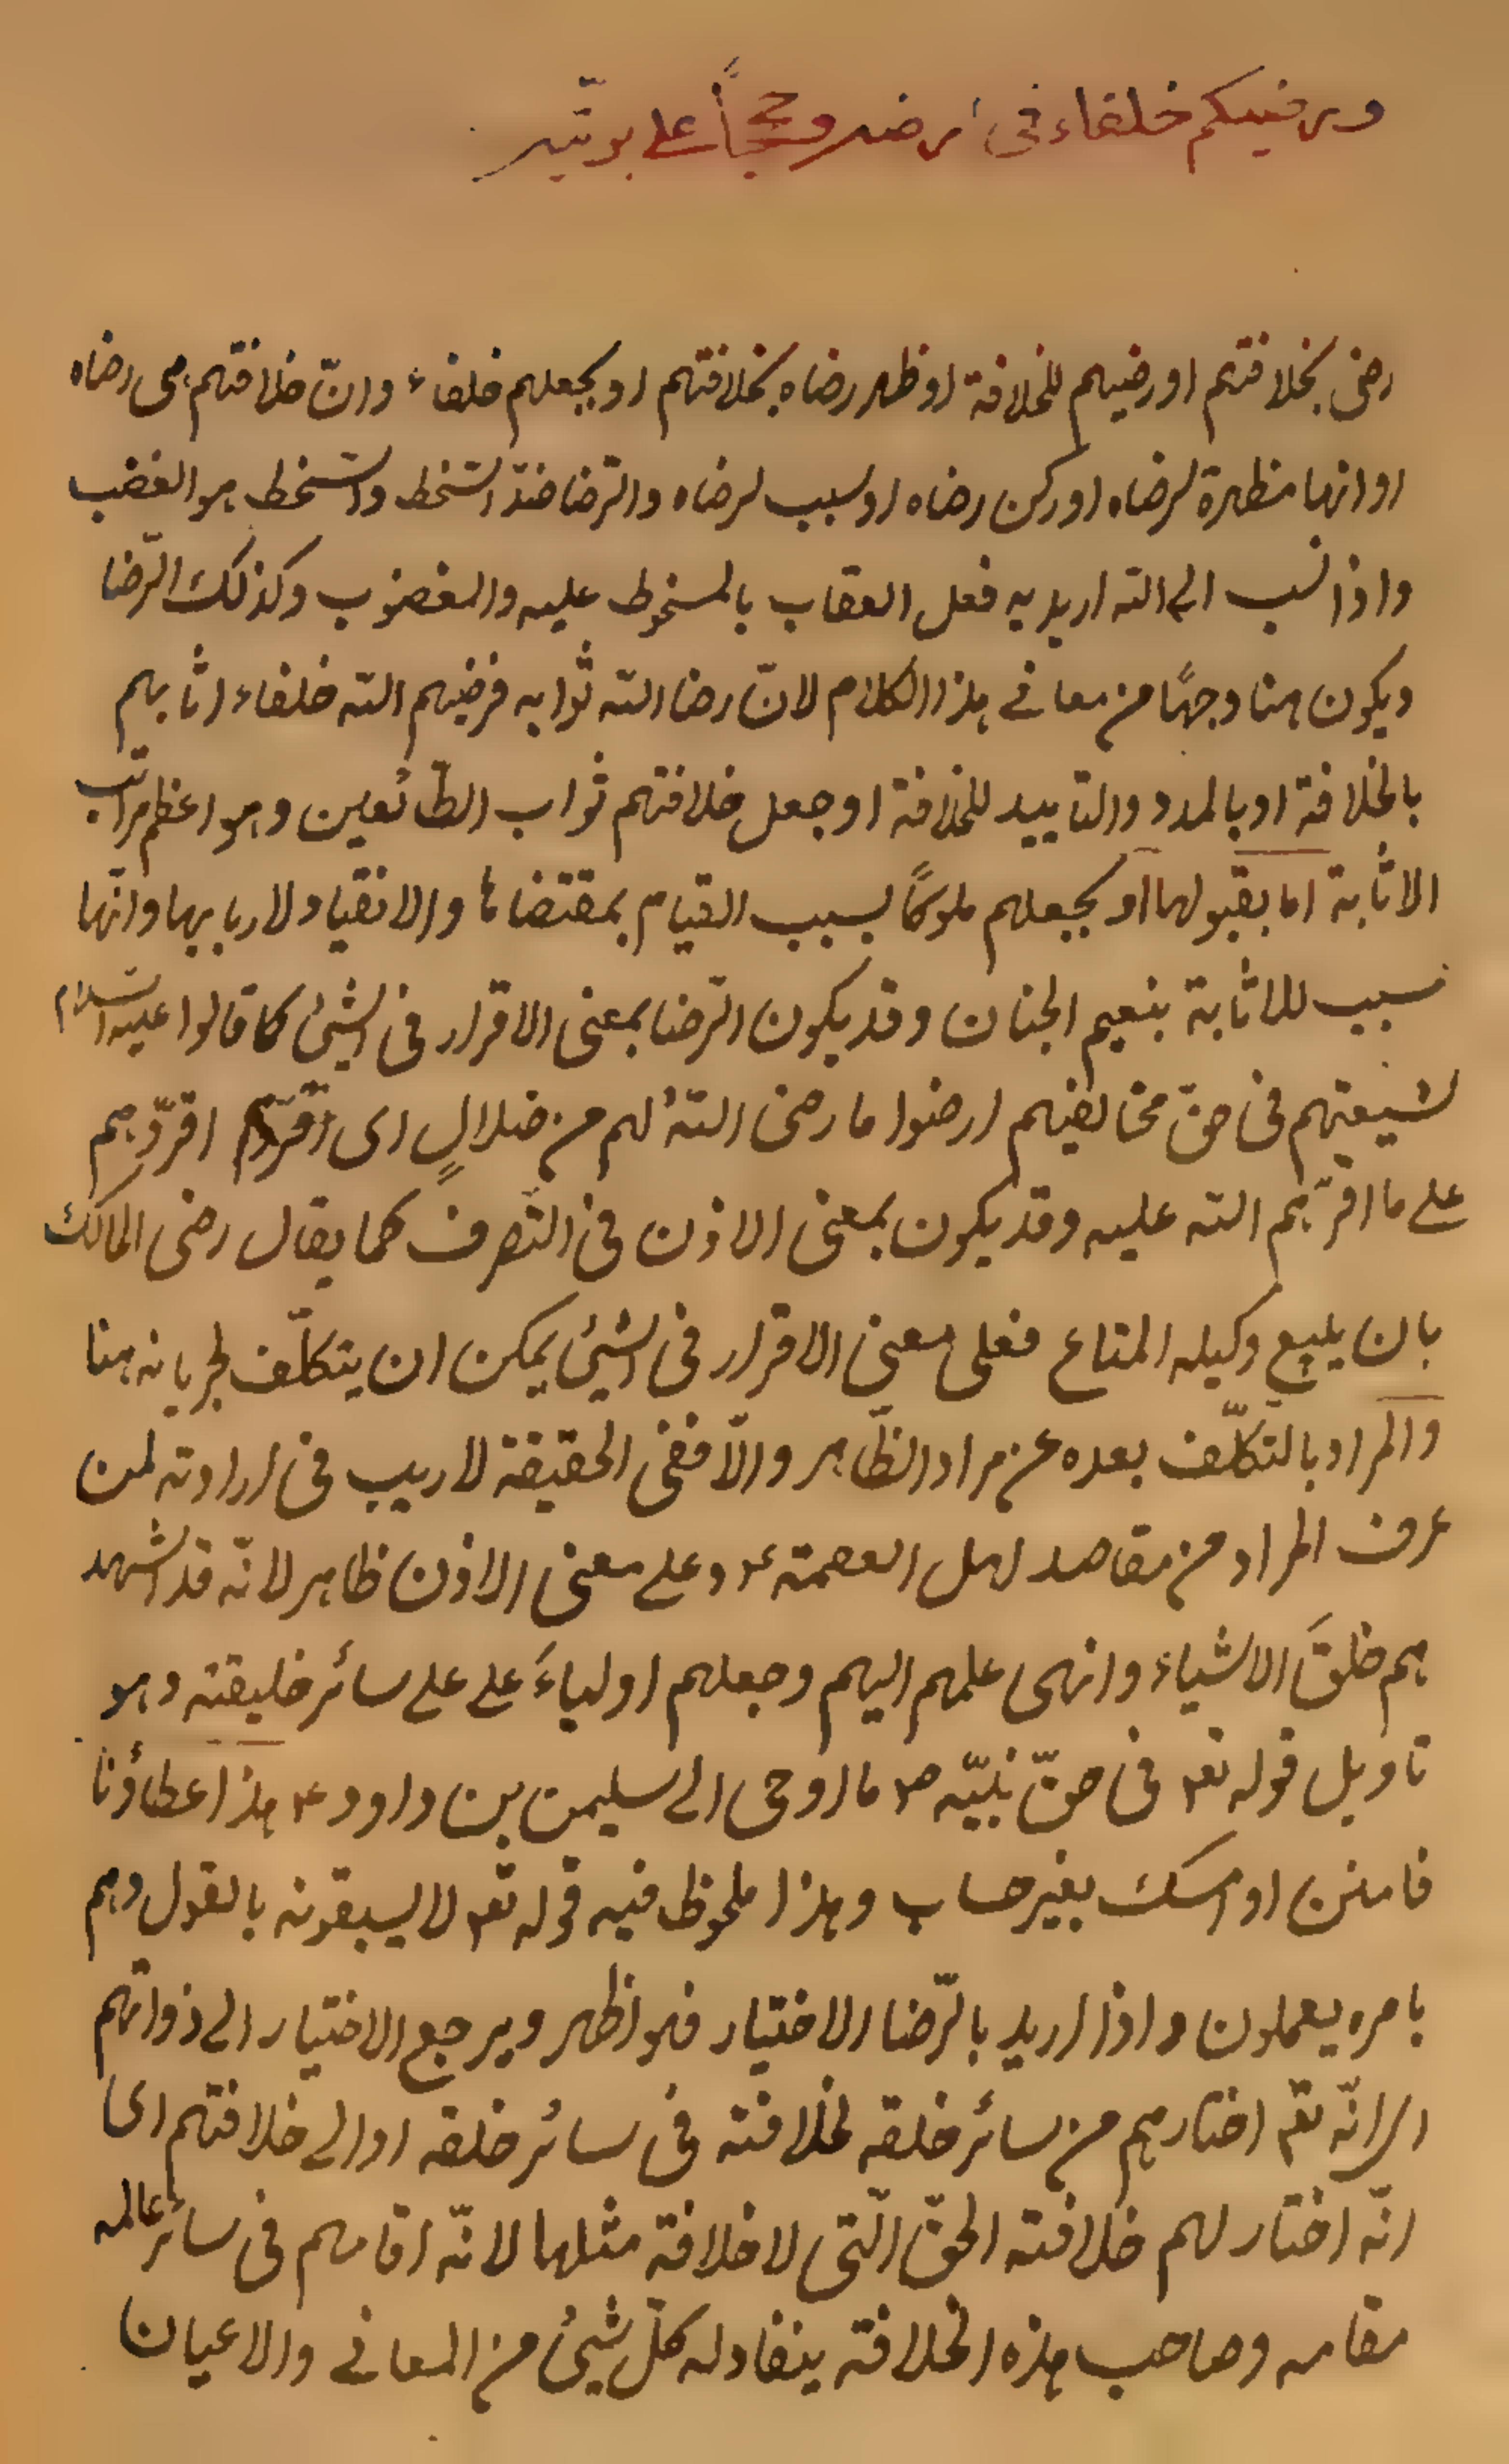 ورضيكم خلفاء في ارضه وحججاً على بريّته
رضى بخلافتهم او رضيهم للخلافة او ظهر رضاه بخلافتهم او بجعلهم خلفاء وانّ خلافتهم هى رضاه
او انها مظهرة لرضاه او ركن رضاه او سبب لرضاه والرّضا ضدّ السّخط والسّخط هو الغضب
واذا نسب الى اللّه اريد به فعل العقاب بالمسخوط عليه والمغضوب وكذلك الرّضا
ويكون هنا وجهًا من معانى هذا الكلام لانّ رضا اللّه ثوابه فرضيهم اللّه خلفاء اثابهم
بالخلافة او بالمدد والتأييد للخلافة او جعل خلافتهم ثواب الطّائعين وهو اعظم مراتب
الاثابة اما بقبولها او بجعلهم ملوكًا بسبب القيام بمقتضاها والانقياد لاربابها وانّها
سبب للاثابة بنعيم الجنان وقد يكون الرّضا بمعنى الاقرار فى الشّئ كما قالوا عليه السّلام
لشيعتهم فى حقّ مخالفيهم ارضوا ما رضى اللّهُ لهم من ضلالٍ اى اقرّوهم
على ما اقرّهم اللّه عليه وقد يكون بمعنى الاذن فى التّصرف كما يقال رضى المالك
بان يبيع وكيله المتاع فعلى معنى الاقرار فى الشّئ يمكن ان يتكلّف لجريانه هنا
والمراد بالتكلّف بعده عن مراد الظّاهر والّا ففى الحقيقة لا ريب فى ارادته لمن
عرف المراد من مقاصد اهل العصمة ع وعلى معنى الاذن ظاهر لانّه قد اشهد
هم خلقَ الاشياء وانهى علمهم اليهم وجعلهم اولياءَ على على سائر خليقته وهو
تاويل قوله تع فى حقّ نبيّه ص ما اوحى الى سليمن بن داود ع هذا عطاؤنا
فامنن او امسك بغير حساب وهذا ملحوظ فيه قوله تع لا يسبقونه بالقول وهم
بامره يعملون واذا اريد بالرّضا الاختيار فهو اظهر ويرجع الاختيار الى ذواتهم
اى انّه تع اختارهم من سائر خلقه لخلافته فى سائر خلقه او الى خلافتهم اى
انّه اختار لهم خلافته الحقّ الّتى لا خلافة مثلها لانّه اقامهم فى سائر عالمه
مقامه وصاحب هذه الخلافة ينقاد له كلّ شئ من المعانى والاعيان